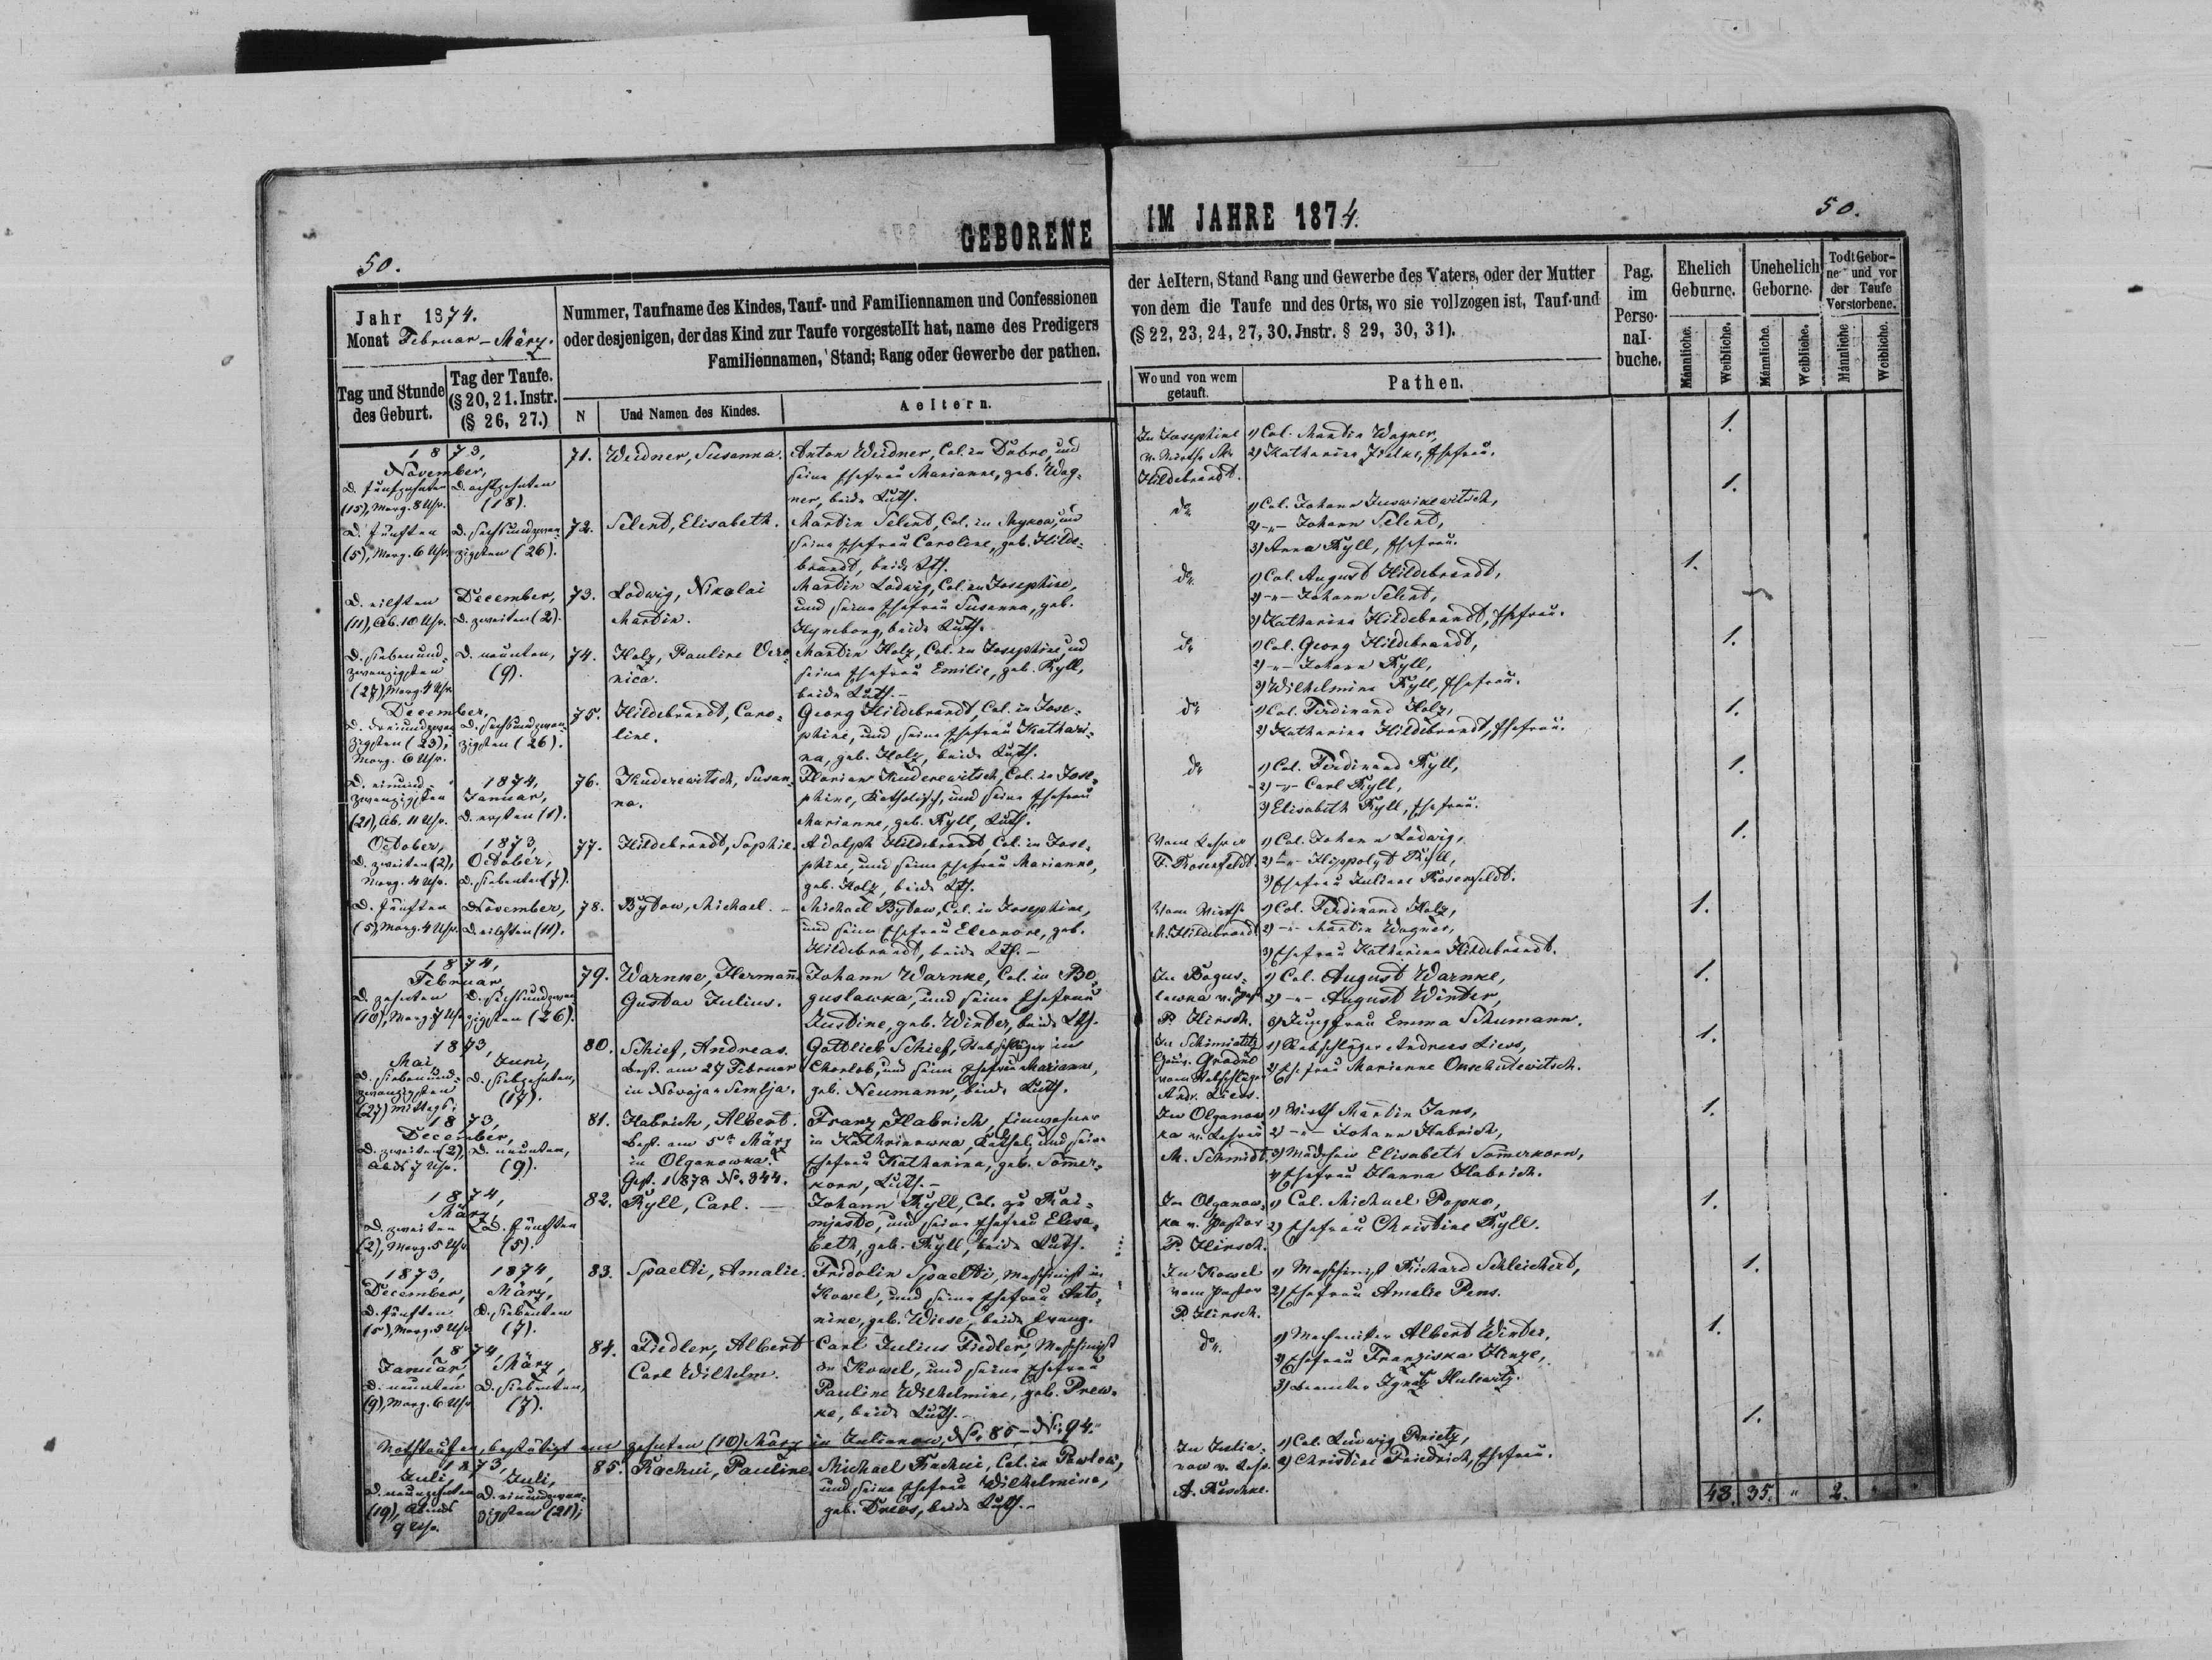 GEBORENE
IM JAHRE 1874.
50.
50.
Jahr 1874.
Monat Februar - März.
Tag und Stunde
des Geburt.
Tag der Taufe.
(§ 20, 21. Instr.
(§ 26, 27.)
Nummer, Taufname des Kindes, Tauf- und Familiennamen und Confessionen
oder desjenigen, der das Kind zur Taufe vorgestellt hat, name des Predigers
Familiennamen, Stand; Rang oder Gewerbe der pathen.
N
Und Namen des Kindes.
Aeltern.
der Aeltern, Stand Rang und Gewerbe des Vaters, oder der Mutter
von dem die Taufe und des Orts, wo sie vollzogen ist, Tauf-und
(§ 22, 23, 24, 27, 30. Jnstr. § 29, 30, 31).
Wo und von wem
getauft.
Pathen.
Pag.
im
Perso-
nal-
buche.
Ehelich
Geburne.
Unehelich
Geborne.
Todt Gebor-
ne und vor
der Taufe
Verstorbene.
Männliche.
Weibliche.
Männliche.
Weibliche.
Männliche
Weibliche.
1873,
November,
D. fünfzehnten
(15), Morg. 8 Uhr.
D. achtzehnten
(18).
71.
Weidner, Susanna.
Anton Weidner, Col. in Dubro, und
seine Ehefrau Marianne, geb. Wag-
ner, beide Luth.
In Josephine
Hildebrandt.
1) Col. Martin Wagner,
2) Katharina Zielke, Ehefrau.
1.
D. fünften
(5), Morg. 6 Uhr.
D. sechsundzwan-
zigsten (26).
72.
Selent, Elisabeth.
Martin Selent, Col. in Mykow, und
seine Ehefrau Caroline, geb. Hilde-
brandt, beide Lth.
do
1) Col. Johann Juswikewitsch,
2) -"- Johann Selent,
3) Anna Ryll, Ehefrau.
1.
D. eilften
(11), Ab. 10 Uhr.
December,
D. zweiten (2).
73.
Ludwig, Nikolai
Martin.
Martin Ludwig, Col. in Josephine,
und seine Ehefrau Susanna, geb.
Hyneborg, beide Luth.
do
1) Col. August Hildebrandt,
2) -"- Johann Selent,
3) Katharina Hildebrandt, Ehefrau.
1.
D. siebenund-
zwanzigsten
(27), Morg. 4 Uhr
D. neunten,
(9).
74.
Holz, Pauline Vero-
nica.
Martin Holz, Col. in Josephine, und
seine Ehefrau Emilie, geb. Ryll,
beide Luth. -
do
1) Col. Georg Hildebrandt,
2) -"- Johann Ryll,
3) Wilhelmine Ryll, Ehefrau.
1.
December,
D. dreiundzwan-
zigsten (23),
Morg. 6 Uhr.
D. sechsundzwan-
zigsten (26).
75.
Hildebrandt, Caro-
line.
Georg Hildebrandt, Col. in Jose-
phine, und seine Ehefrau Kathari-
na, geb. Holz, beide Luth.
do
1) Col. Ferdinand Holz,
2) Katharina Hildebrandt, Ehefrau.
1.
D. einund-
zwanzigsten
(21), Ab. 11 Uhr.
1874,
Januar,
D. ersten (1).
76.
Kuderewitsch, Susan-
na.
Florian Kuderewitsch, Col. in Jose-
phine, Katholisch, und seine Ehefrau
Marianne, geb. Ryll, Luth.
do
1) Col. Ferdinand Ryll,
2) -"- Carl Ryll,
3) Elisabeth Ryll, Ehefrau.
1.
October,
D. zweiten (2),
Morg. 4 Uhr.
1873,
October,
D. siebenten (7).
77.
Hildebrandt, Sophie.
Adolph Hildebrandt, Col. in Jose-
phine, und seine Ehefrau Marianne,
geb. Holz, beide Lth.
Vom Lehrer
F. Rosenfeldt.
1) Col. Johann Ludwig,
2) -"- Hippolyt Ryll,
3) Ehefrau Juliane Rosenfeldt.
1.
D. fünften
(5), Morg. 4 Uhr.
November,
D. eilften (11).
78.
Bytow, Michael. -
Michael Bytow, Col. in Josephine,
und seine Ehefrau Eleonore, geb.
Hildebrandt, beide Lth. -
Vom Wirth
M. Hildebrandt.
1) Col. Ferdinand Holz,
2) -"- Martin Wagner,
3) Ehefrau Katharina Hildebrandt.
1.
1874,
Februar,
D. zehnten
(10), Morg. 7 Uhr
D. sechsundzwan-
zigsten (26).
79.
Warnke, Hermann
Gustav Julius.
Johann Warnke, Col. in Bo-
guslawka, und seine Ehefrau
Justine, geb. Winter, beide Lth.
In Bogus-
lawka v. Past
P. Hirsch.
1) Col. August Warnke,
2) -"- August Winter,
3) Jungfrau Emma Schumann.
1.
1873,
Mai,
D. siebenund-
zwanzigsten
(27) Mittags.
Juni,
D. siebzehnten,
(17).
80.
Schief, Andreas.
Best. am 27 Februar
in Novoja-Semlja.
Gottlieb Schief, Stabschläger in
Chorlob, und seine Ehefrau Marianne,
geb. Neumann, beide Luth.
In Schimiatitz
Gouv. Grodno
vom Stabschläger
Andr. Liews.
1) Stabschläger Andreas Liews,
2) Ehefrau Marianne Onschulewitsch.
1.
1873,
December,
D. zweiten (2),
Abds 7 Uhr.
D. neunten,
(9).
81.
Habrich, Albert.
Best. am 5ten März
in Olganowka.
Gest. 1878 No. 344.
Franz Habrich, Einwohner
in Kathrinowka, Kathol., und seine
Ehefrau Katharina, geb. Somer-
korn, Luth. -
In Olganow-
ka v. Lehrer
M. Schmidt.
1) Wirth Martin Jans,
2) -"- Johann Habrich,
3) Mädchen Elisabeth Somerkorn,
4) Ehefrau Hanna Habrich.
1.
1874,
März,
D. zweiten
(2), Morg. 5 Uhr.
D. fünften
(5).
82.
Ryll, Carl. -
Johann Ryll, Col. zu Rai-
mjasto, und seine Ehefrau Elisa-
beth, geb. Ryll, beide Luth.
In Olganow-
ka v. Pastor
P. Hirsch.
1) Col. Michael Popko,
2) Ehefrau Christine Ryll.
1.
1873,
December,
D. fünften
(5), Morg. 8 Uhr
1874,
März,
D. siebenten
(7).
83.
Spaelti, Amalie.
Fridolin Spaelti, Maschinist in
Kowel, und seine Ehefrau Anto-
nine, geb. Wiese, beide Evang.
In Kowel
vom Pastor
P. Hirsch.
1) Maschinist Richard Schleichert,
2) Ehefrau Amalie Pens.
1.
1874,
Januar,
D. neunten
(9), Morg. 6 Uhr
März,
D. siebenten,
(7).
84.
Fiedler, Albert
Carl Wilhelm.
Carl Julius Fiedler, Maschinist
in Kowel, und seine Ehefrau
Pauline Wilhelmine, geb. Prew-
ke, beide Luth. -
do.
1) Mechaniker Albert Winter,
2) Ehefrau Franziska Hinze,
3) Beamter Ignatz Hulewitz.
1.
Nothtaufen, bestätigt am zehnten (10) März in Julianow, No. 85 - No. 94.
1873,
Juli,
D. neunzehnten
(19), Abends
9 Uhr.
Juli,
D. einundzwan-
zigsten (21),
85.
Rachui, Pauline.
Michael Rachui, Col. in Pawlow,
und seine Ehefrau Wilhelmine,
geb. Drews, beide Luth. -
In Julia-
now v. Lehr.
A. Reschke.
1) Col. Ludwig Prietz,
2) Christine Friedrich, Ehefrau.
1.
48. 35. " 2. " "